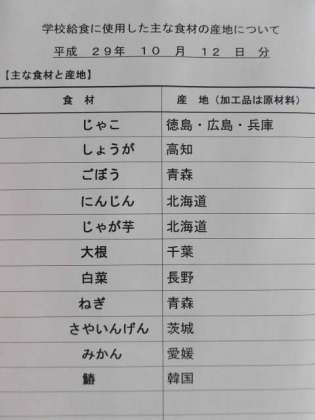 学校給食に使用した主な食材の産地について
平成 29年 10 月 12 日 分
【主な食材と産地】
食 材 産 地（加工品は原材料）
じゃこ 徳島・広島・兵庫
しょうが 高知
ごぼう 青森
にんじん 北海道
じゃが芋 北海道
大根 千葉
白菜 長野
ねぎ 青森
さやいんげん 茨城
みかん 愛媛
鰆 韓国